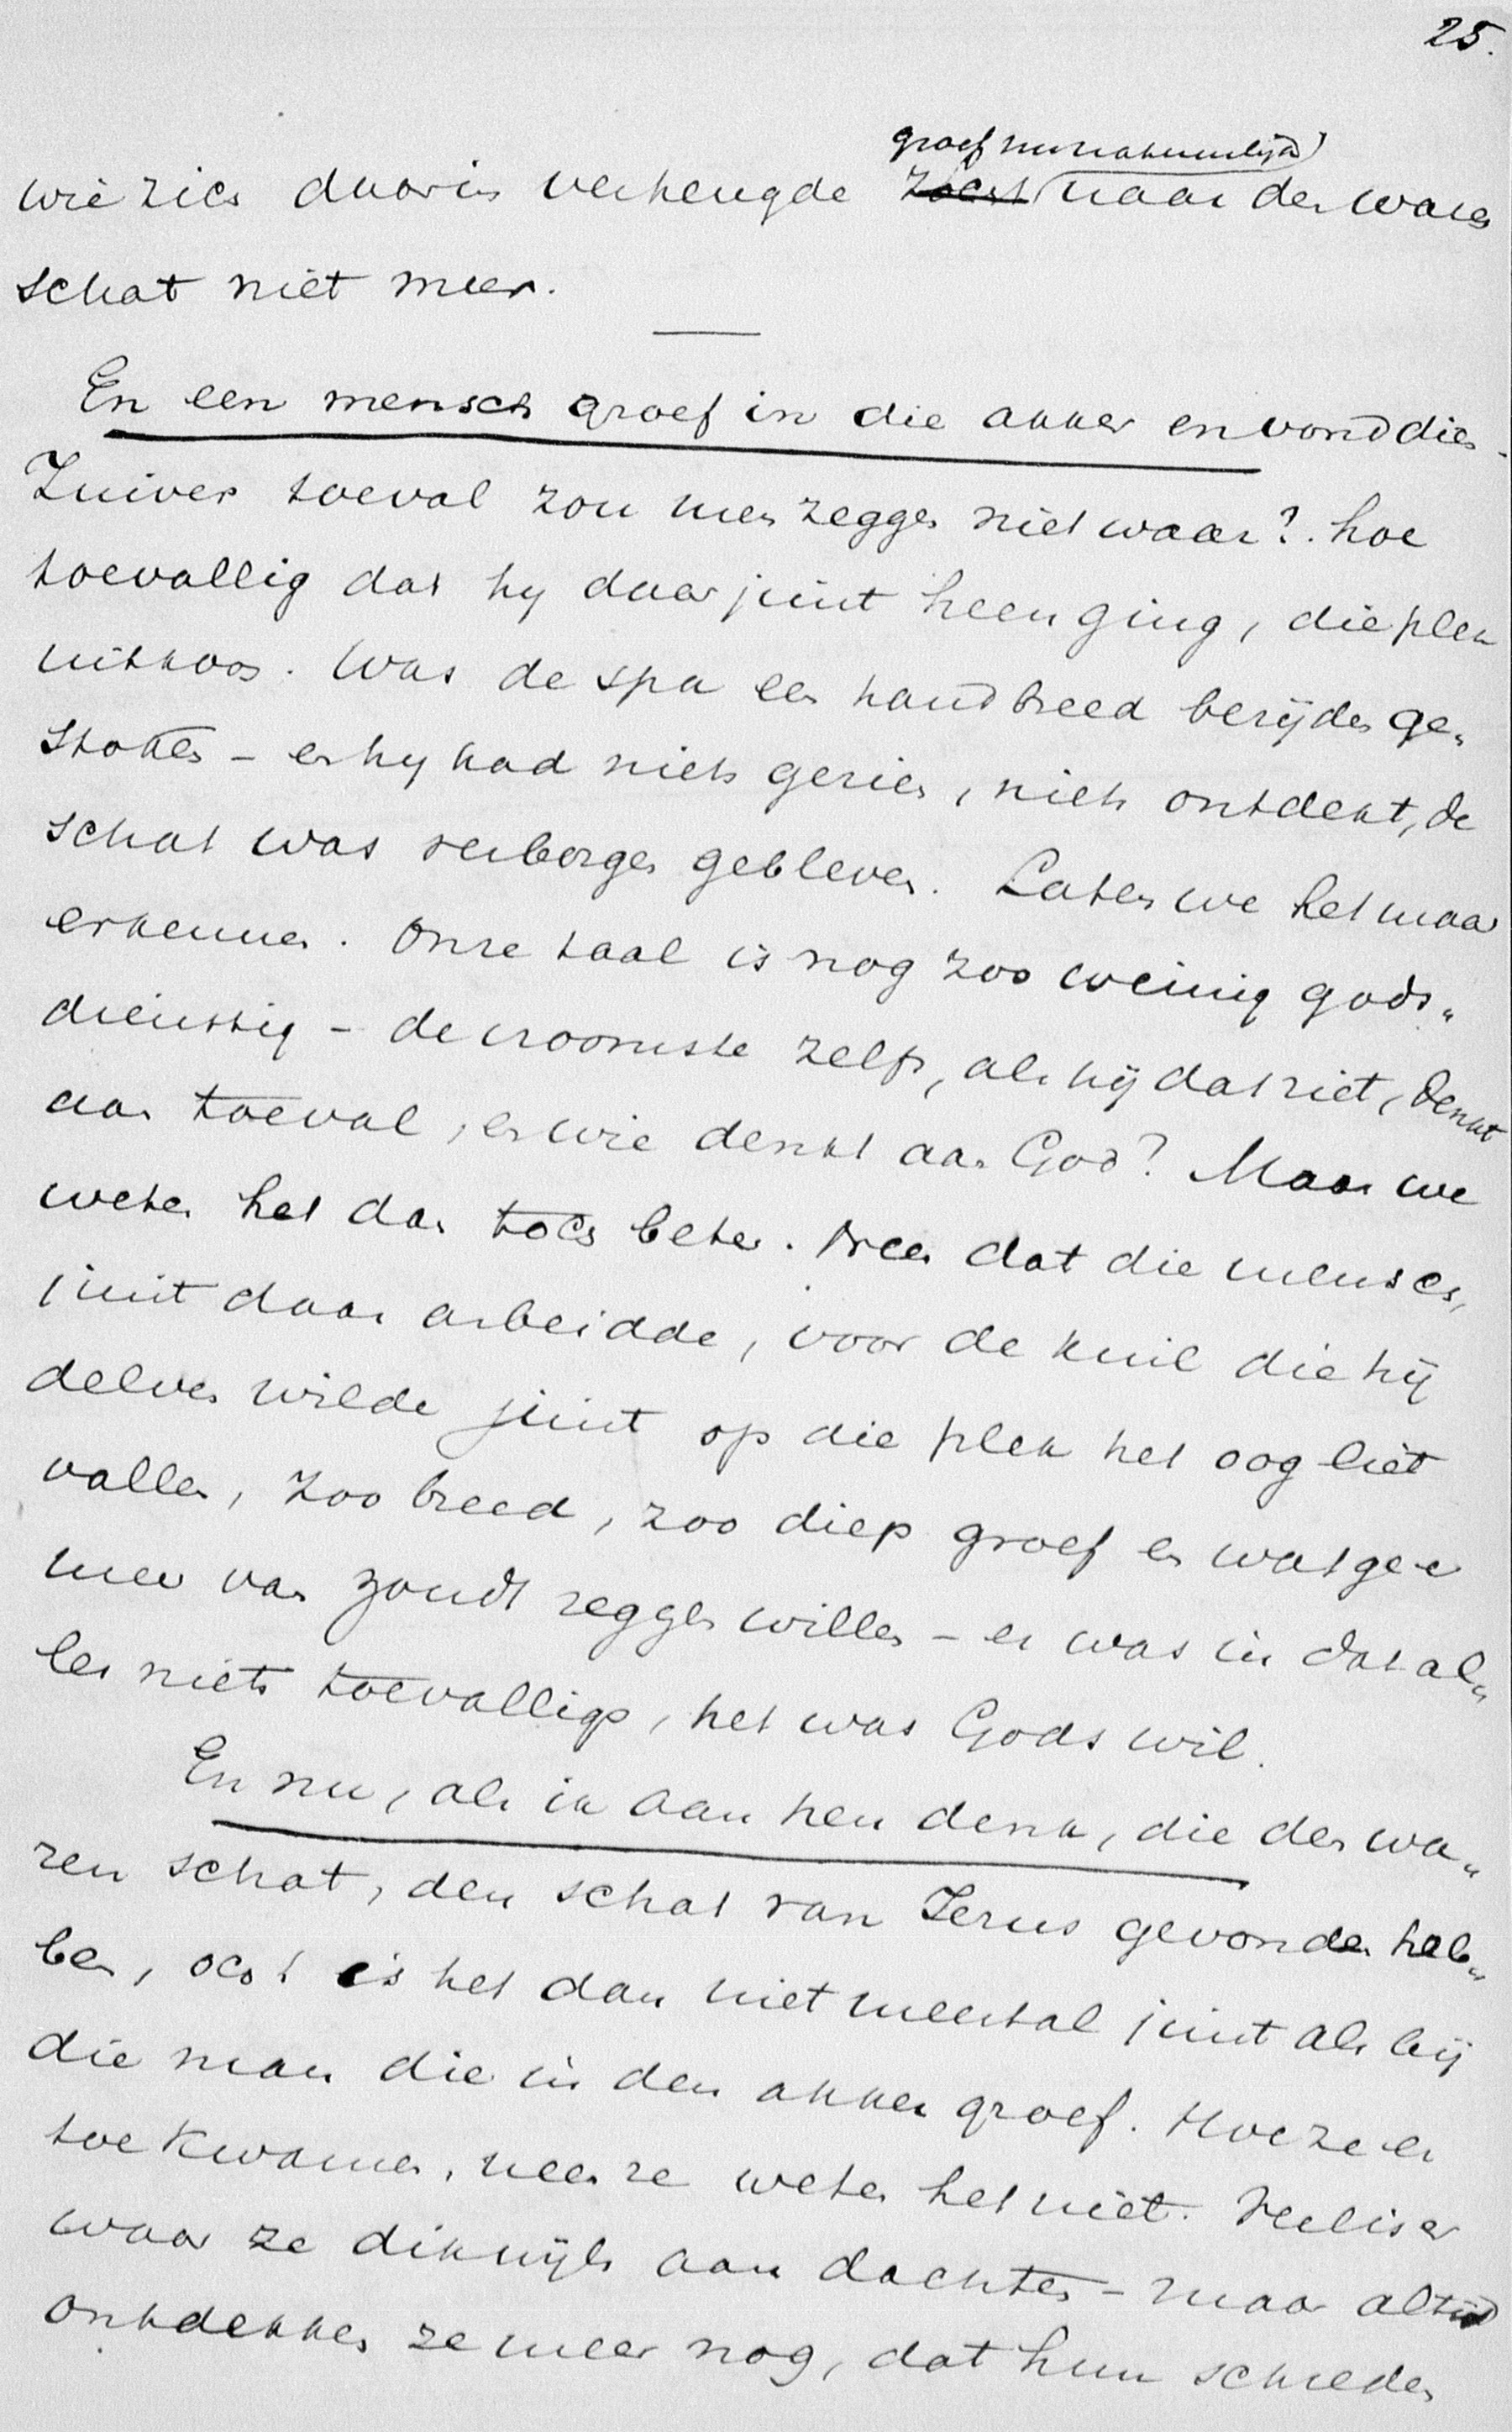 25.
groef nu natuurlijk
wie zich daarin verheugde zocht naar den waren
schat niet meer.
En een mensch groef in die akker en vond dien.
Zuiver toeval zou men zeggen niet waar? hoe
toevallig dat hy daar juist heen ging, die plek
uitkoos. Was de spa een handbreed bezijden ge„
stoken – en hy had niets gezien, niets ontdekt, de
schat was verborgen gebleven. Laten we het maar
erkennen. Onze taal is nog zoo weinig gods„
dienstig – de vroomste zelfs, als hij dat ziet, denkt
aan toeval, en wie denkt aan God? Maar we
weten het dan toch beter. Neen dat die mensch,
juist daar arbeidde, voor de kuil die hij
delven wilde juist op die plek het oog liet
vallen, zoo breed, zoo diep groef en wat ge er
meer van zoudt zeggen willen – er was in dat al„
les niets toevalligs, het was Gods wil.
En nu, als ik aan hen denk, die den wa„
ren schat, den schat van Jezus gevonden heb„
ben, och is het dan niet meestal juist als bij
die man die in den akker groef. Hoe ze er
toe kwamen, neen ze weten het niet. Veel is er
waar ze dikwijls aan dachten – maar altijd
ontdekken ze meer nog, dat hun schreden